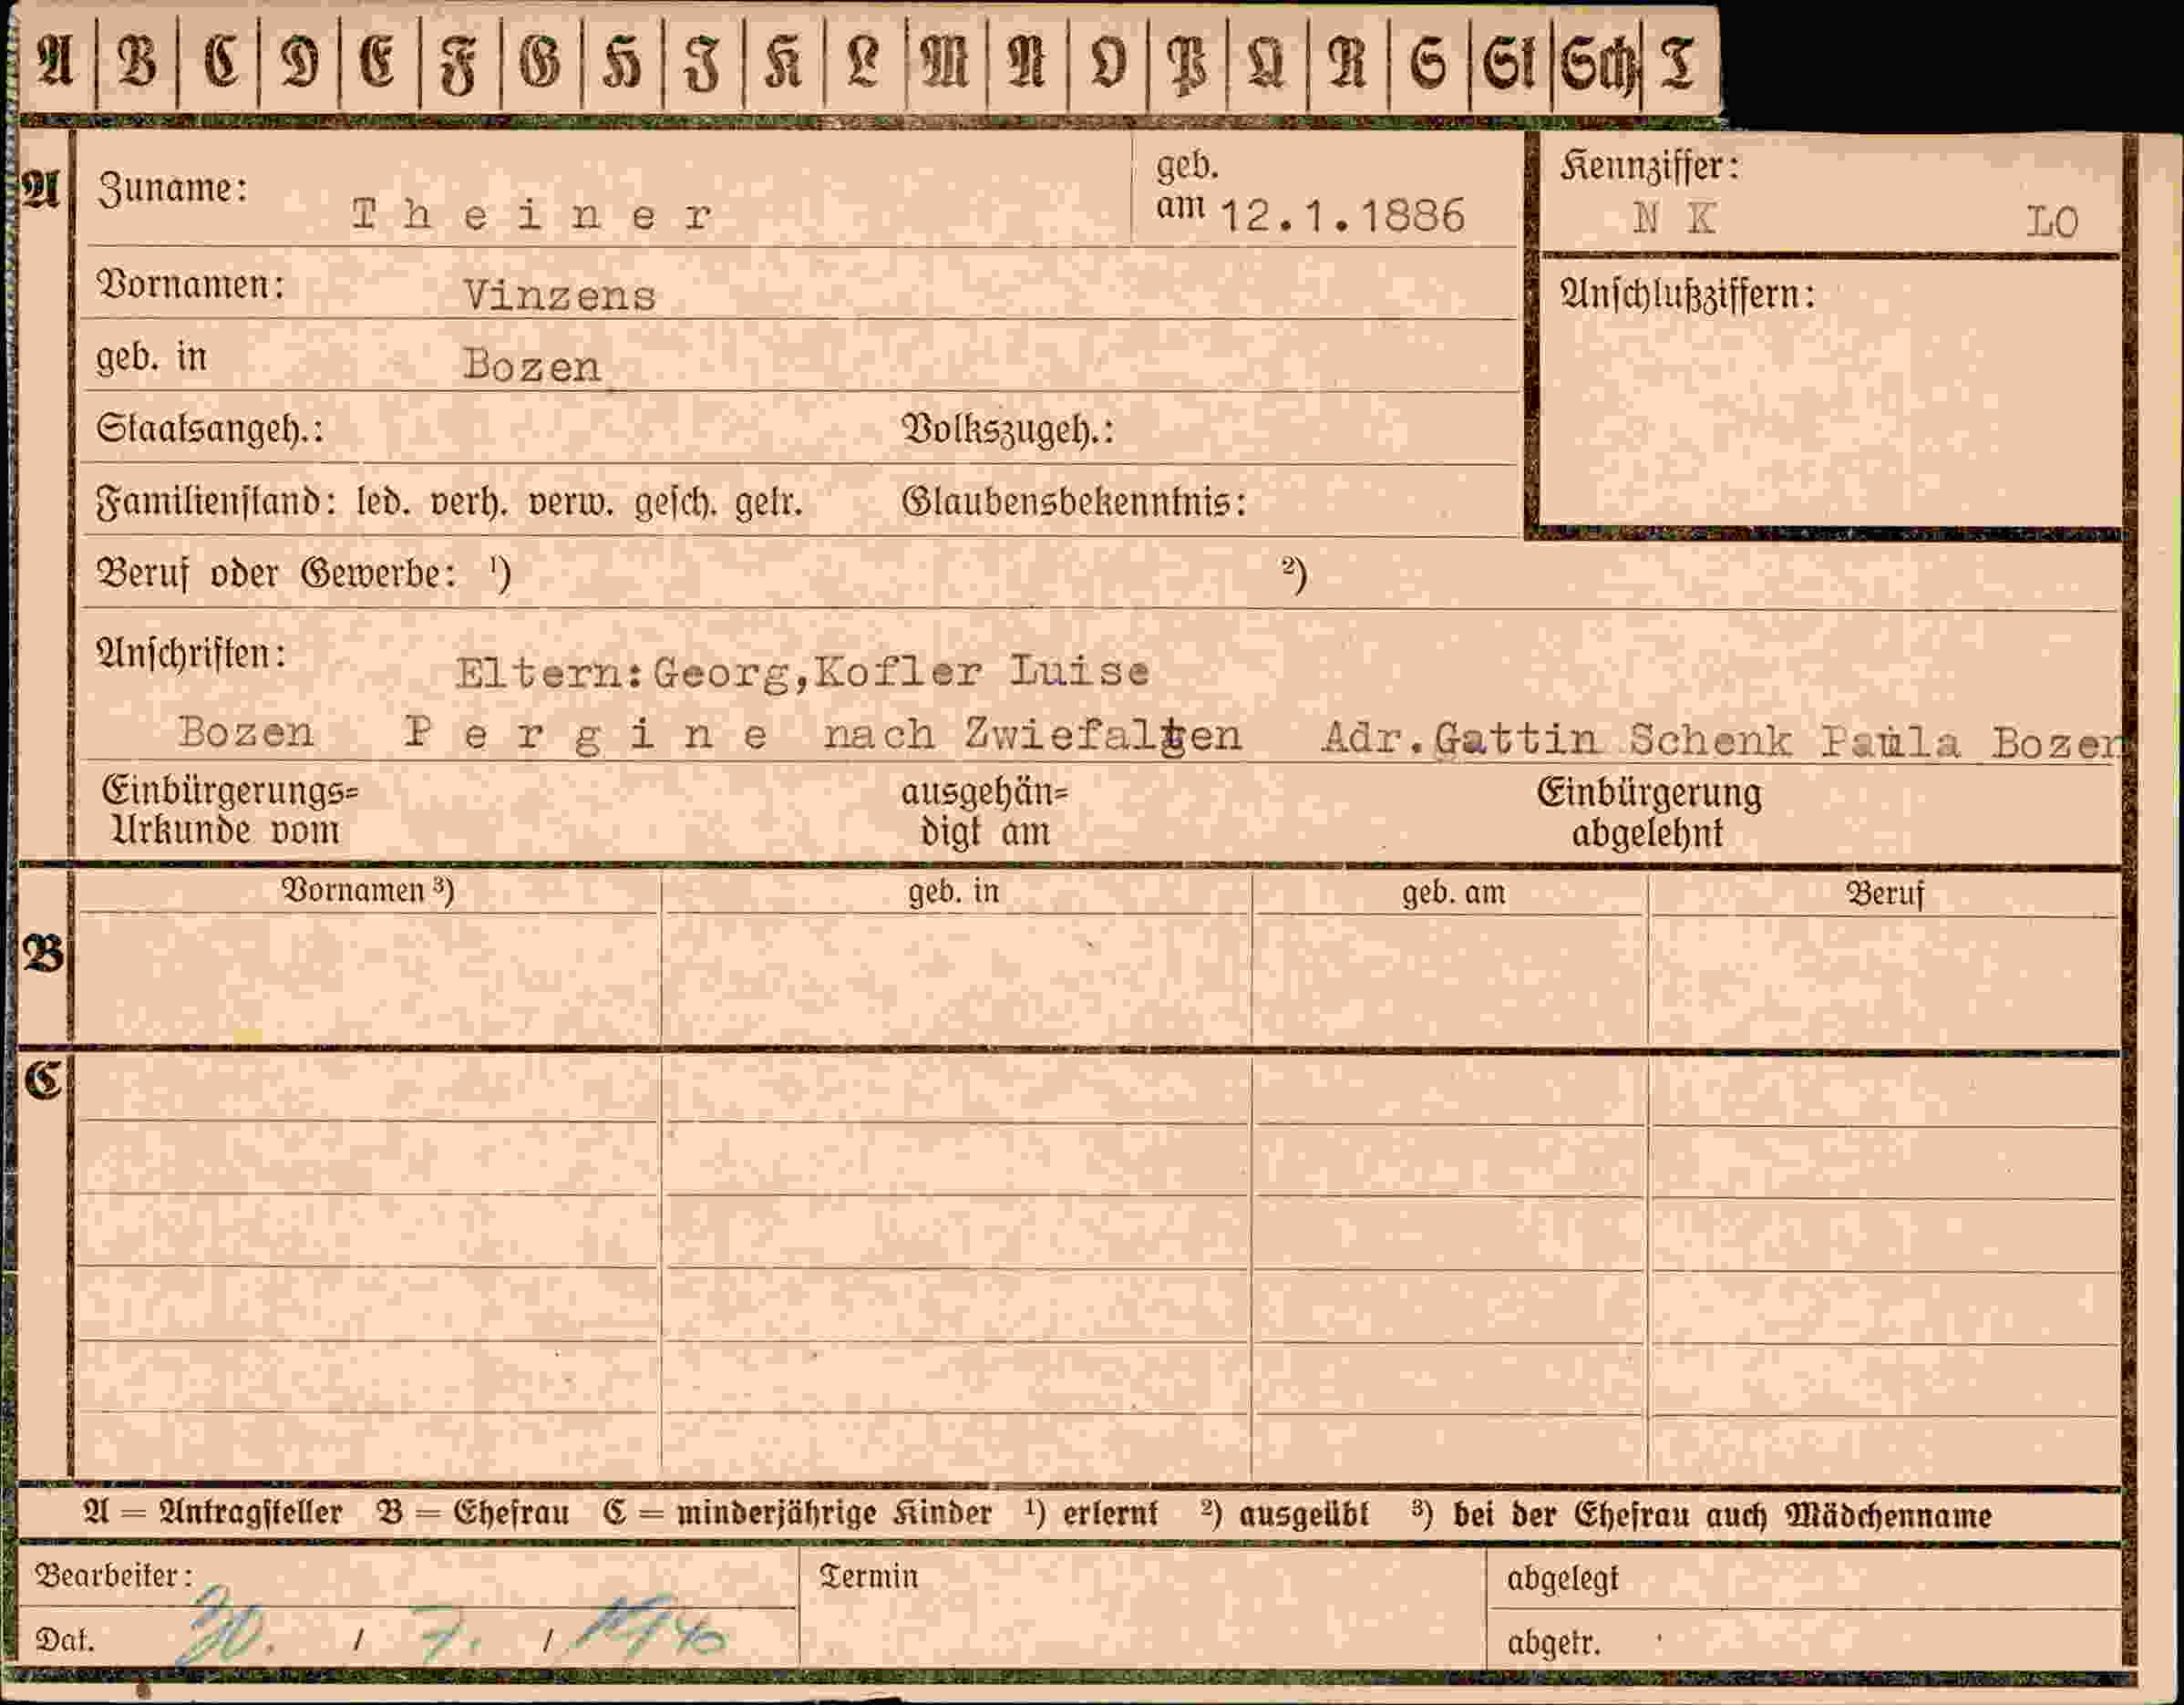 A B C D E F G H I K L M N O P Q R S St Sch T
A Zuname: Theiner geb. am 12.1.1886 Kennziffer: N K LO
Vornamen: Vinzens Anschlußziffern:
geb. in Bozen
Staatsangeh.: Volkszugeh.:
Familienstand: led. verh. verw. gesch. getr. Glaubensbekenntnis:
Beruf oder Gewerbe: ¹) ²)
Anschriften: Eltern:Georg,Kofler Luise
Bozen Pergine nach Zwiefalten Adr.Gattin Schenk Paula Bozen
Einbürgerungs= ausgehän= Einbürgerung
Urkunde vom digt am abgelehnt
Vornamen ³) geb. in geb. am Beruf
B
C
A = Antragsteller B = Ehefrau C = minderjährige Kinder ¹) erlernt ²) ausgeübt ³) bei der Ehefrau auch Mädchenname
Bearbeiter: Termin abgelegt
Dat. 30. / 7. / 1940 abgetr.